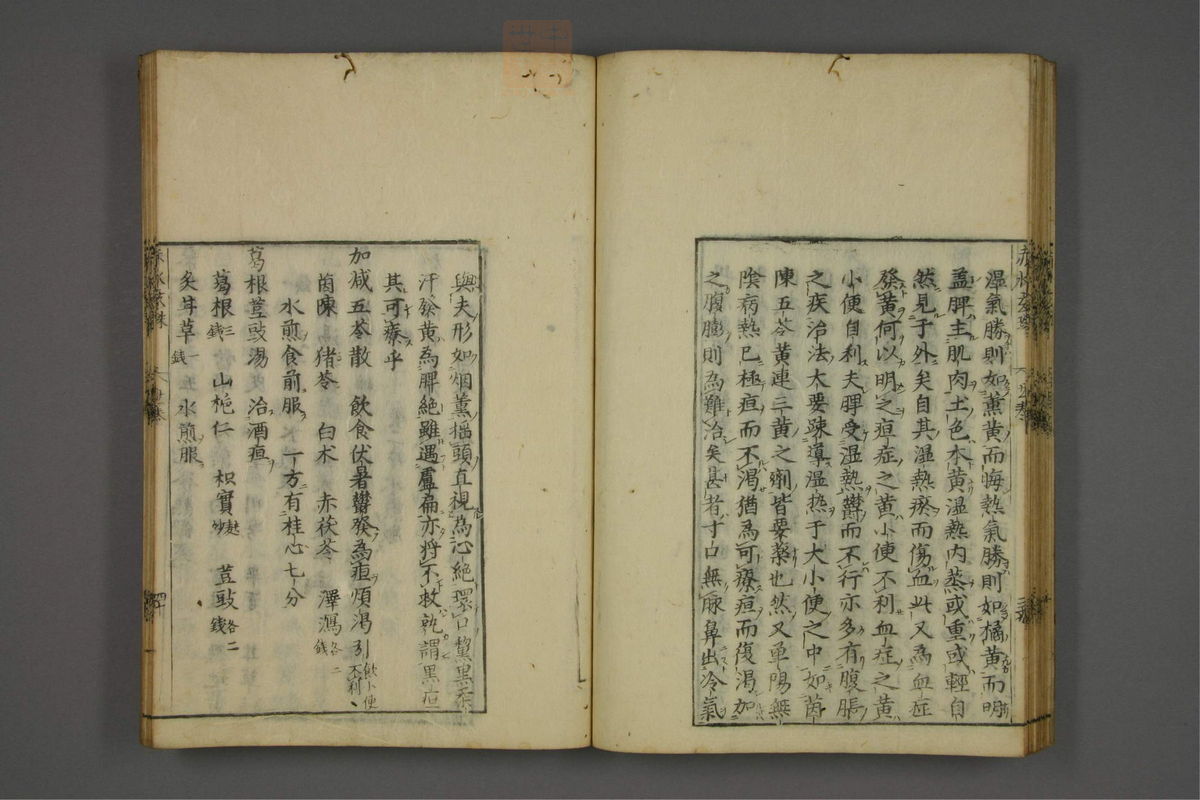 濕氣勝則如薰黃而晦熱氣勝則如橘黃而明
盖脾主肌肉土色本黃濕熱内蒸或重或輕自
然見于外矣自其濕熱瘀而傷血此又為血症
發黃何以明之疸症之黃小便不利血症之黃
小便自利夫脾受濕熱欝而不行亦多有腹脹
之疾治法大要疎導濕热于大小便之中如茵
陳五苓黃連三黃之劑皆要藥也然又单陽無
陰病熱已極疸而不渴猶為可療疸而復渴加
之腹膨則為難治矣甚者寸口無脉鼻出冷氣
與夫形如烟薰摇頭直視為心絕環口黧黑柔
汗發黃為脾絕雖遇盧扁亦将不救孰謂黑疸
其可療乎
加减五苓散 飲食伏暑欝發為疸煩渴引飲小便不利
茵陳 猪苓 白术 赤茯苓 澤瀉各二錢
水煎食前服 一方有桂心七分
葛根荳豉湯 治酒疸
葛根三錢 山梔仁 枳實麸炒 荳豉各二錢
炙甘草一錢 水煎服